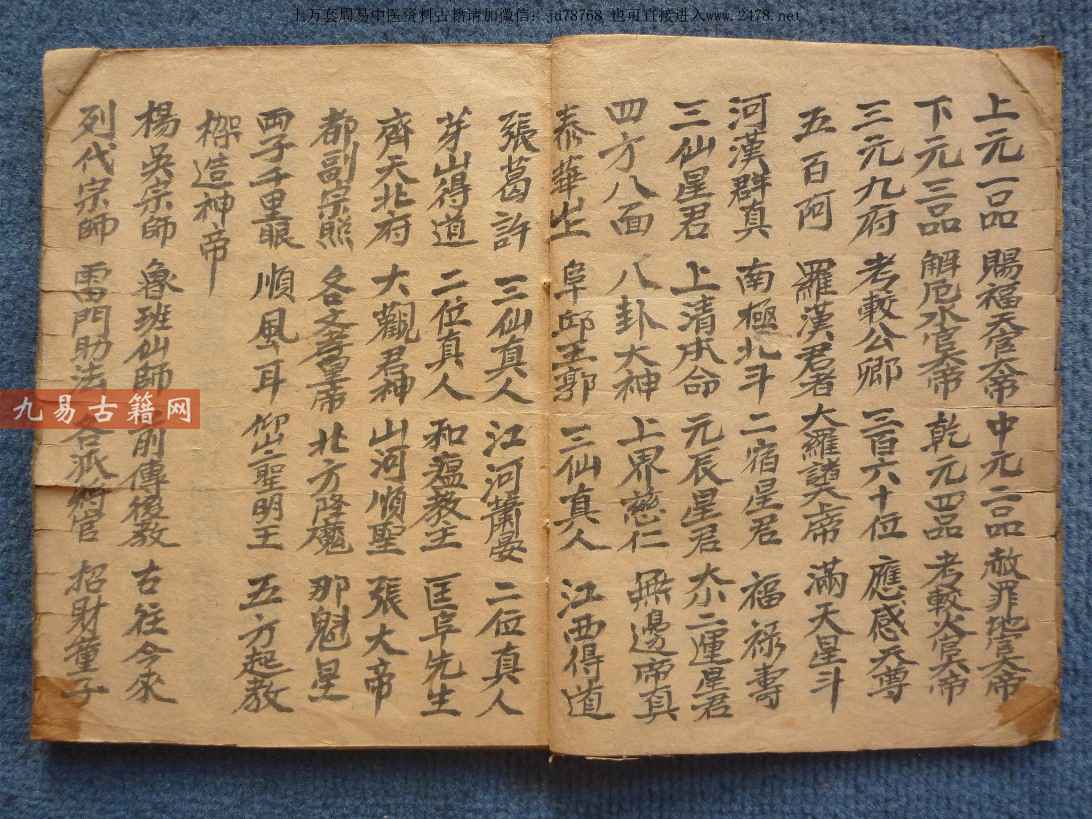 上万套周易中医资料古籍请加微信：jd78768 也可直接进入www.2478.net
上元一品 賜福天官大帝 中元二品 赦罪地官大帝
下元三品 解厄水官大帝 乾元四品 考較火官大帝
三元九府 考較公卿 三百六十位 應感天尊
五百阿 羅漢君者 大羅 帝 滿天星斗
河漢群真 南極北斗 二宿星君 福禄壽
三仙星君 上清本命 元辰星君 大小二運星君
四方八面 八卦大神 上界慈仁 無邊帝真
泰華山 阜邱王郭 三仙真人 江西得道
張葛許 三仙真人 江河蕭晏 二位真人
芽山得道 二位真人 和瘟教主 匡阜先生
齊天北府 大觀君神 山河順聖 張大帝
都副宗照 各 帝 北方降魔 那魁星
西子千里眼 順風耳 聖明王 五方起教
楔造神帝
楊吳宗師 魯班仙師 前傳後教 古往今來
列代宗師 雷門助法 各派總官 招財童子
九易古籍网